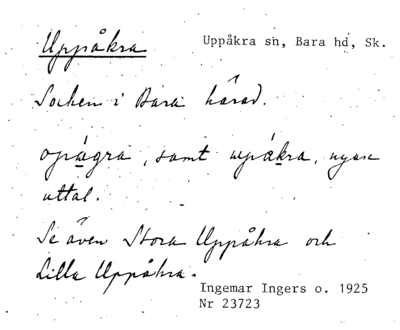 Uppåkra
Uppåkra sn, Bara hd, Sk.
Socken i Bara härad.
opágra, samt upákra, nyare
uttal.
Se även Stora Uppåkra och
Lilla Uppåkra.
Ingemar Ingers o. 1925
Nr 23723